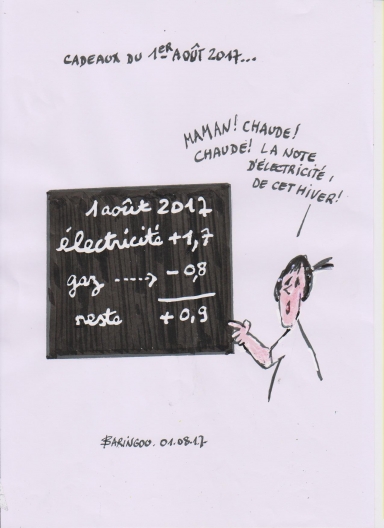 CADEAUX DU 1ER AOÛT 2017...
MAMAN! CHAUDE!
CHAUDE! LA NOTE
D'ÉLECTRICITÉ,
DE CET HIVER!
1 août 2017
électricité +1,7
gaz ----> -0,8
reste +0,9
BARINGOU. 01.08.17